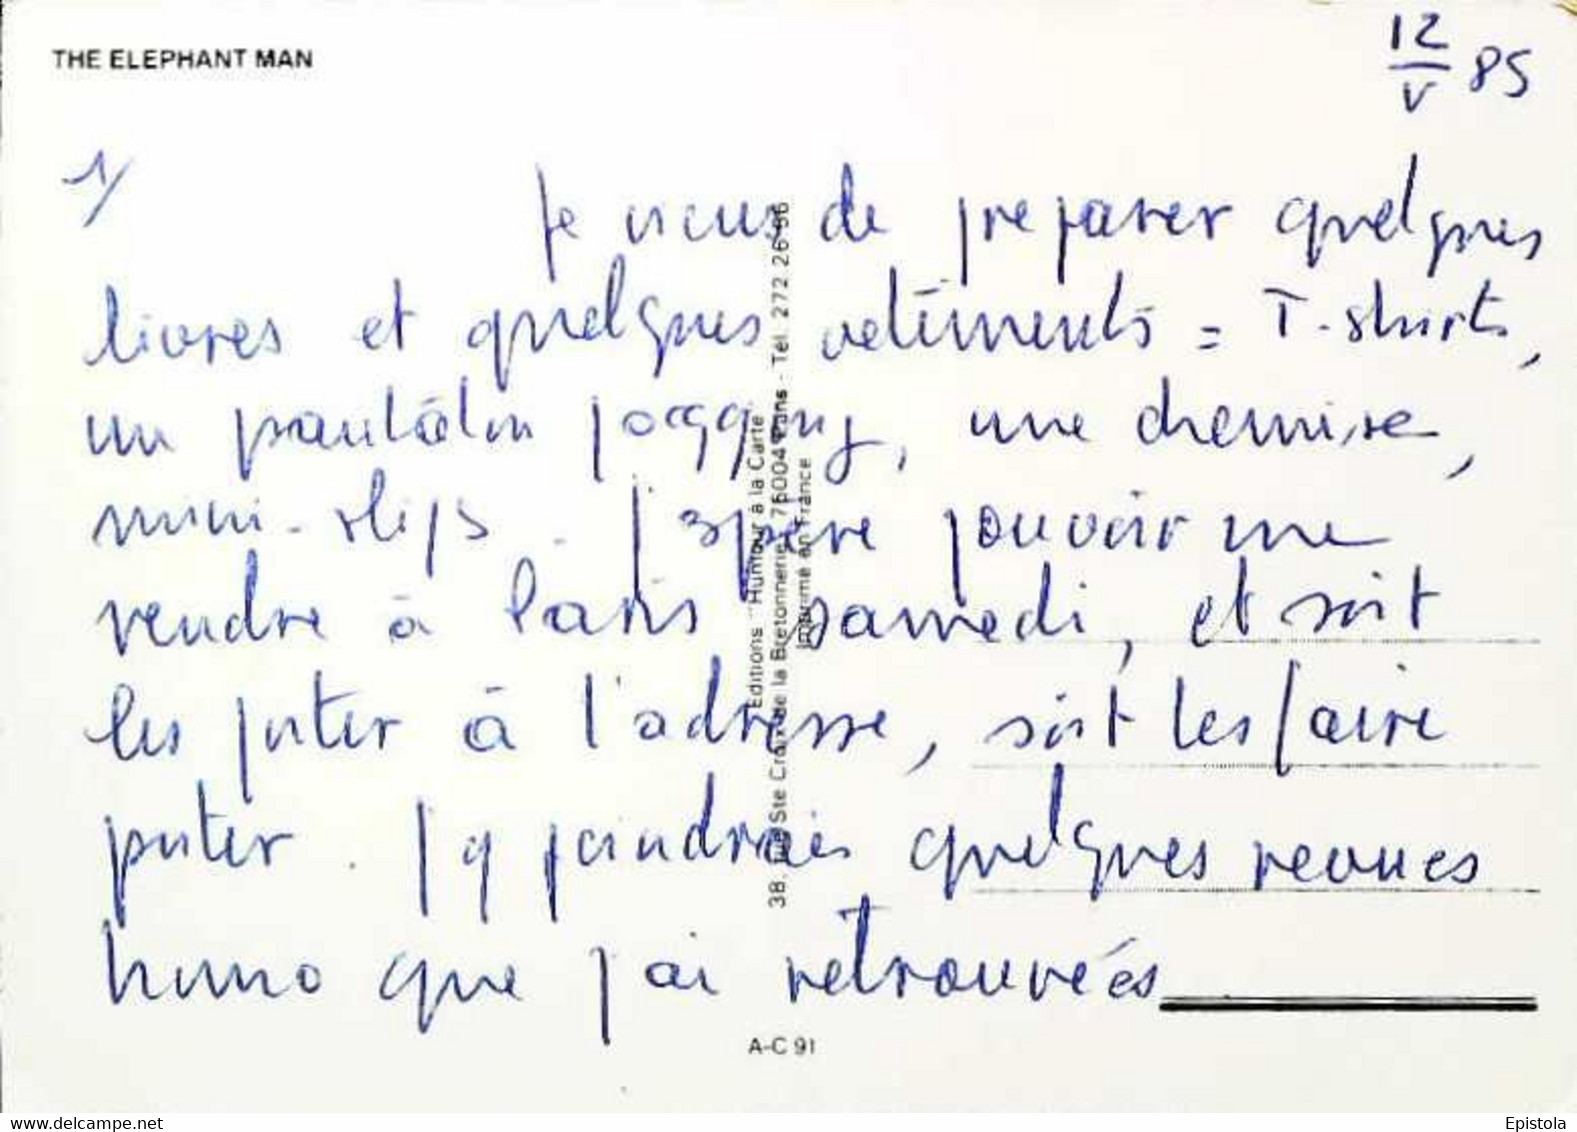 THE ELEPHANT MAN
12/V 85
1/
Je viens de préparer quelques
livres et quelques vêtements = T-shirts,
un pantalon jogging, une chemise,
mini-slips. J'espère pouvoir me
rendre à Paris samedi, et soit
les poster à l'adresse, soit les faire
poster. J'y joindrais quelques revues
homo que j'ai retrouvées
Editions "Humour à la Carte"
38, rue Ste Croix de la Bretonnerie, 75004 Paris - Tel. 272 26 86
Imprimé en France
A-C 91
www.delcampe.net
Epistola